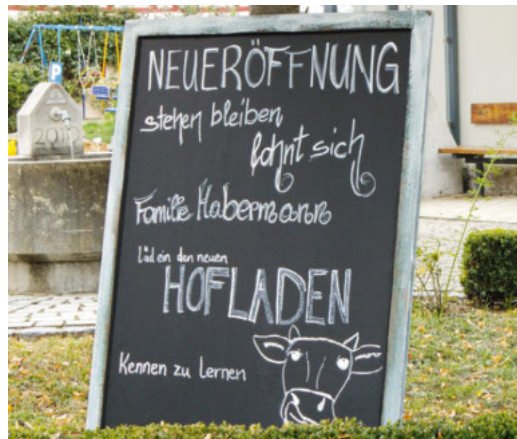 NEUERÖFFNUNG
stehen bleiben
lohnt sich
Familie Habermann
Läd ein den neuen
HOFLADEN
Kennen zu Lernen
P
2012